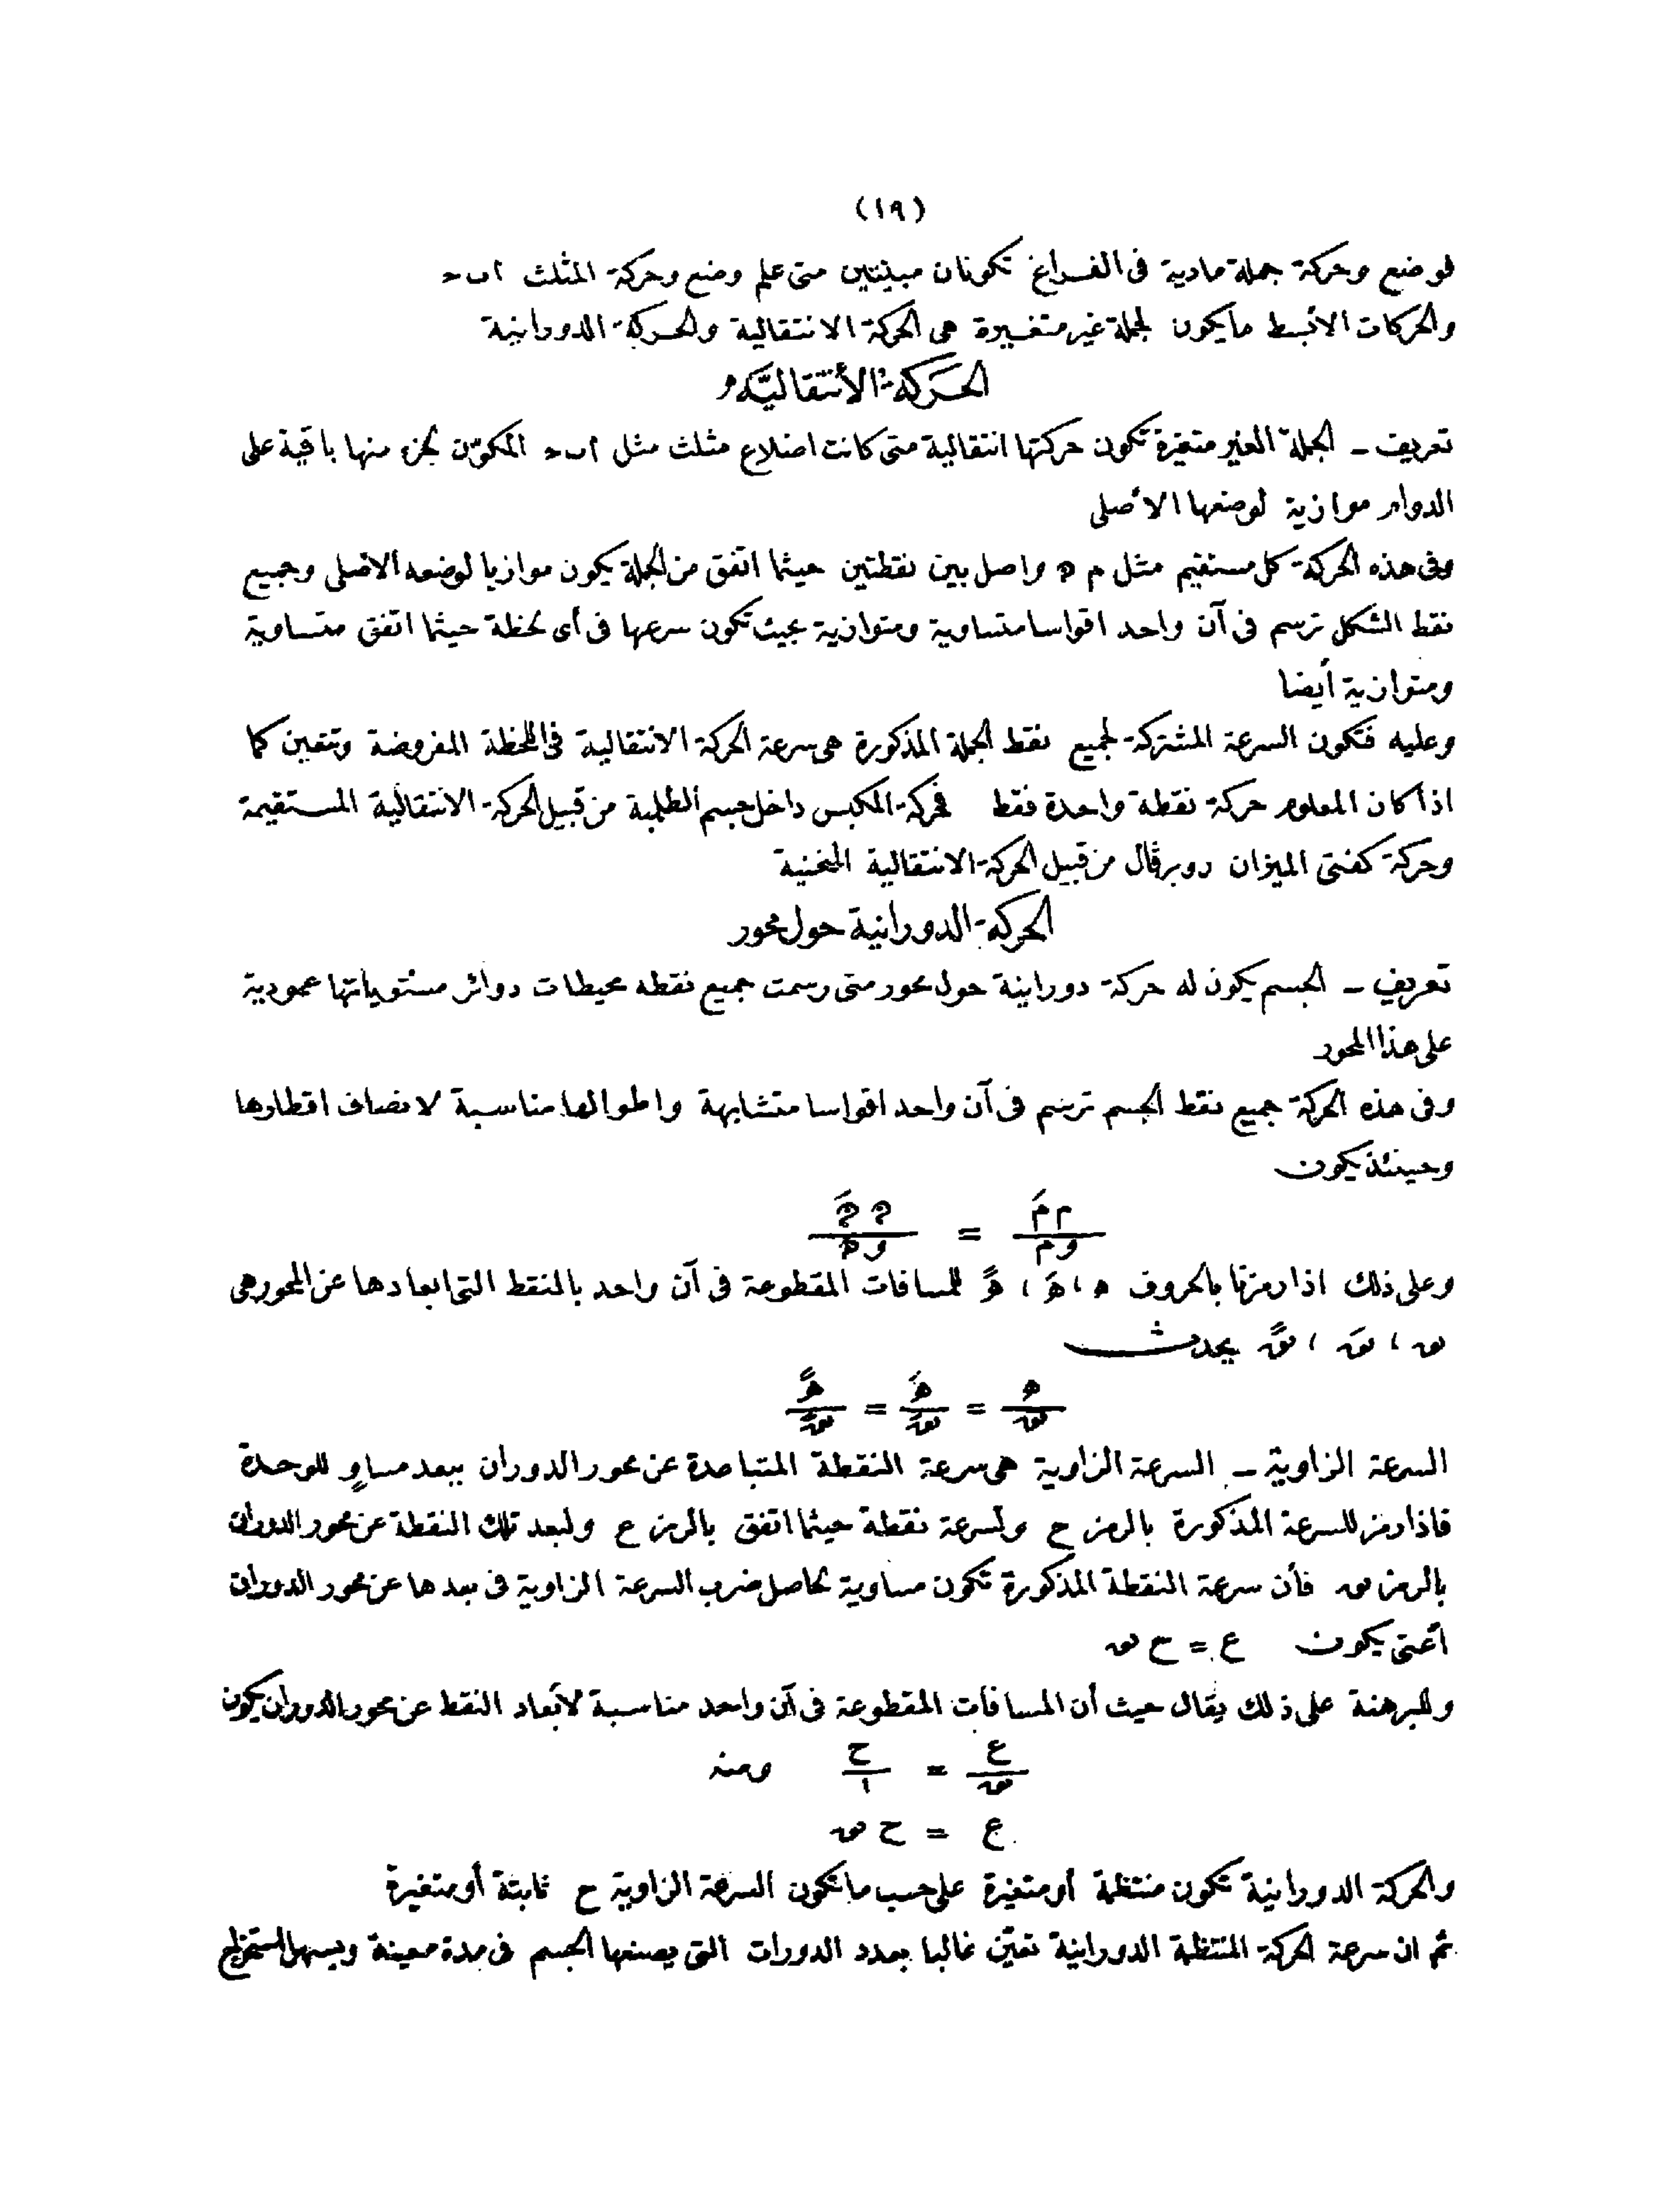 (١٩)
فوضع وحركة جملة مادية فى الفراغ تكونان مبينتين متى علم وضع وحركة المثلث اٮح
والحركات الأبسط مايكون لجملة غير متغيرة هى الحركة الانتقالية والحركة الدورانية
الحَركة الأنتقاليَّة
تعريف ـ الجملة الغير متغيرة تكون حركتها انتقالية متى كانت اضلاع مثلث مثل اٮح المكوّن لجزء منها باقية على
الدوام موازية لوضعها الأصلى
وفى هذه الحركة كل مستقيم مثل م ه واصل بين نقطتين حيثما اتفق من الجملة يكون موازيا لوضعه الأصلى وجميع
نقط الشكل ترسم فى آن واحد اقواسا متساوية ومتوازية بحيث تكون سرعها فى أى لحظة حيثما اتفق متساوية
ومتوازية أيضا
وعليه فتكون السرعة المشتركة لجميع نقط الجملة المذكورة هى سرعة الحركة الانتقالية فى اللحظة المفروضة وتتعين كما
اذا كان المعلوم حركة نقطة واحدة فقط فحركة المكبس داخل جسم الطلمبة من قبيل الحركة الانتقالية المستقيمة
وحركة كفتى الميزان روبرڤال من قبيل الحركة الانتقالية المنحنية
الحركة الدورانية حول محور
تعريف ـ الجسم يكون له حركة دورانية حول محور متى رسمت جميع نقطه محيطات دوائر مستوياتها عمودية
على هذا المحور
وفى هذه الحركة جميع نقط الجسم ترسم فى آن واحد اقواسا متشابهة واطوالها مناسبة لانصاف اقطارها
وحينئذ يكون
م مَ / و م = ه هَ / و ه
وعلى ذلك اذا رمزنا بالحروف ه ، هَ ، هً للمسافات المقطوعة فى آن واحد بالنقط التى ابعادها عن المحور هى
س ، سَ ، سً يحدث
ه / س = هَ / سَ = هً / سً
السرعة الزاوية ـ السرعة الزاوية هى سرعة النقطة المتباعدة عن محور الدوران ببعد مساوٍ للوحدة
فاذا رمز للسرعة المذكورة بالرمز ح ولسرعة نقطة حيثما اتفق بالرمز ع ولبعد تلك النقطة عن محور الدوران
بالرمز س فأن سرعة النقطة المذكورة تكون مساوية لحاصل ضرب السرعة الزاوية فى بعدها عن محور الدوران
أعنى يكون ع = ح س
وللبرهنة على ذلك يقال حيث أن المسافات المقطوعة فى آن واحد مناسبة لأبعاد النقط عن محور الدوران يكون
ع / س = ح / ١ ومنه
ع = ح س
والحركة الدورانية تكون منتظمة أو متغيرة على حسب ما تكون السرعة الزاوية ح ثابتة أو متغيرة
ثم ان سرعة الحركة المنتظمة الدورانية تعيّن غالبا بعدد الدورات التى يصنعها الجسم فى مدة معينة ويسهل استخراج